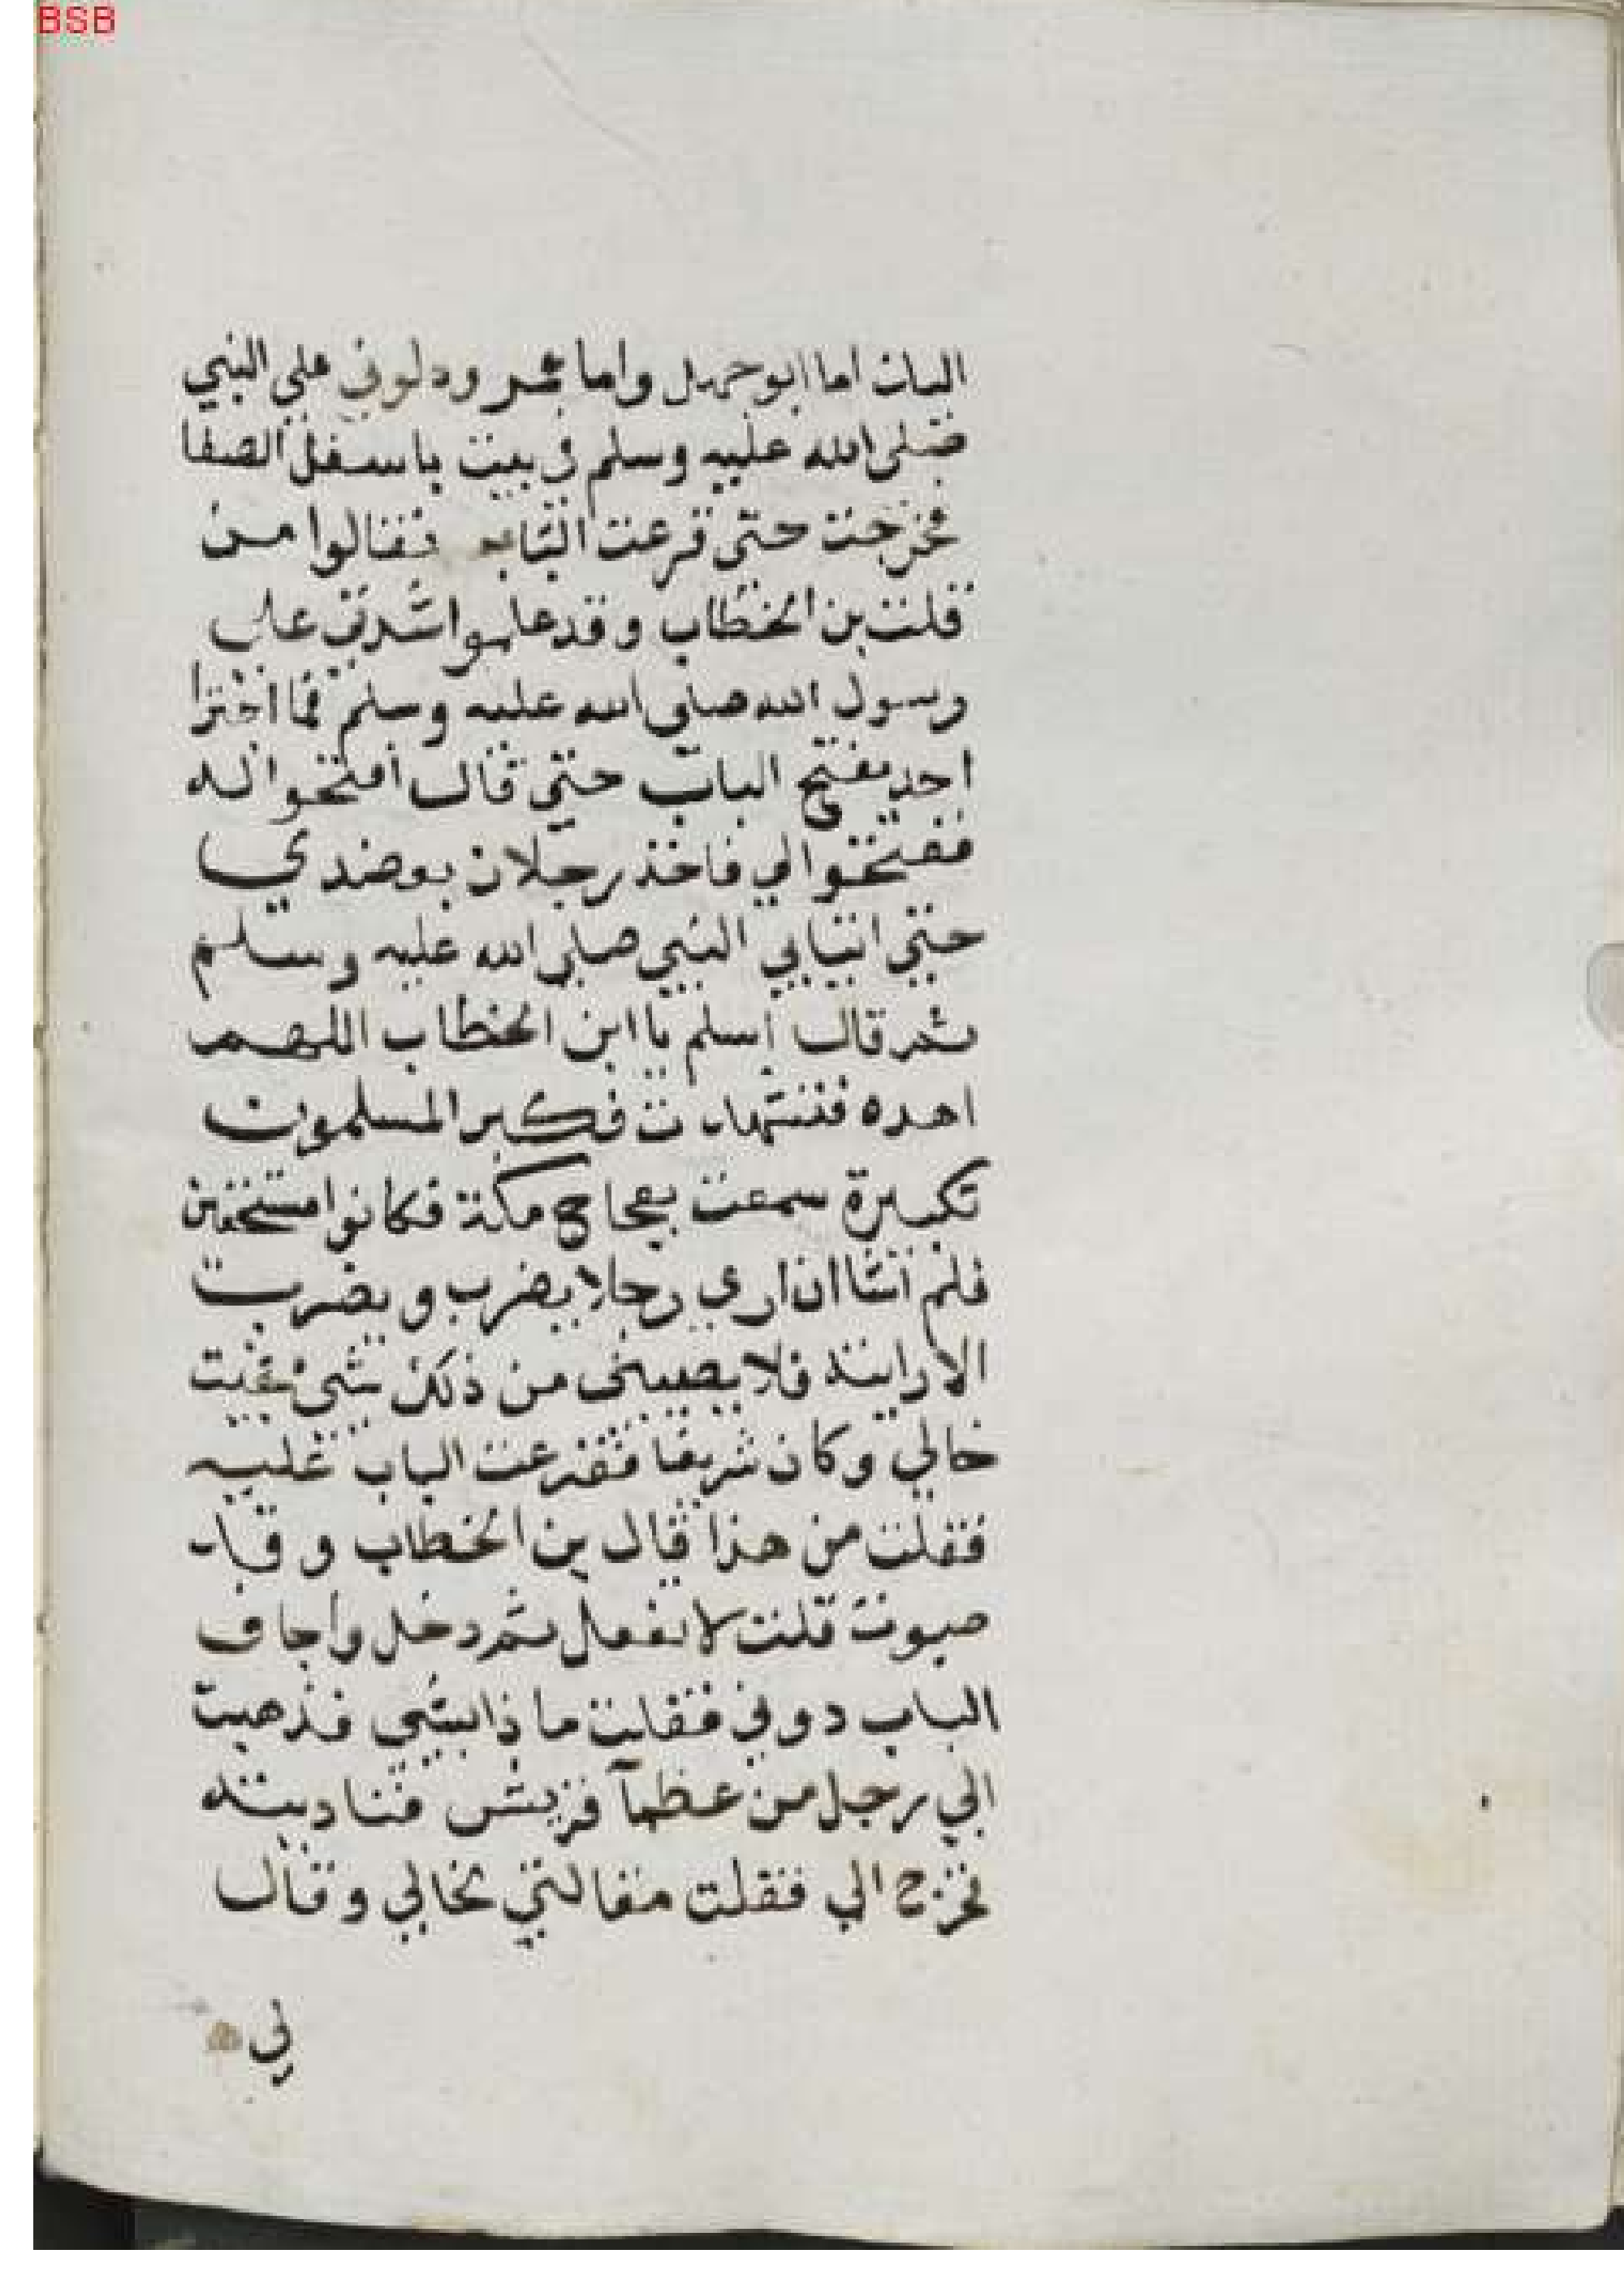 BSB
اليك اما ابو جهل واما عمر ودلوني علي النبي
صلى الله عليه وسلم في بيت باسفل الصفا
فخرجت حتى قرعت الباب فقالوا من
فقلت بن الخطاب وقد علموا شدتي على
رسول الله صلى الله عليه وسلم فما اجترا
احد يفتح الباب حتي قال افتحوا له
ففتحوا لي فاخذ رجلان بعضدي
حتي اتياني النبي صلى الله عليه وسلم
ثم قال اسلم يا ابن الخطاب اللهم
اهده فتشهدت فكبر المسلمون
تكبيرة سمعت بفجاج مكة فكانوا مستخفين
فلم اشا ان اري رجلا يضرب ويضرب
الا رايته فلا يصيبني من ذلك شيء فجيت
خالي وكان شريفا فقرعت الباب عليه
فقلت من هذا قال بن الخطاب وقد
صبوت قلت لا تفعل ثم دخل واجاف
الباب دوني فقلت ما ذا بشي فذهبت
الي رجل من عظمآ قريش فناديته
فخرج الي فقلت مقالتي لخالي وقال
لي